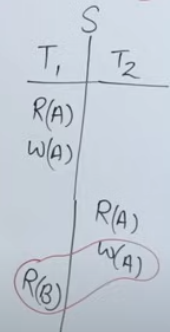 S
T₁ T₂
R(A)
W(A)
R(A)
W(A)
R(B)